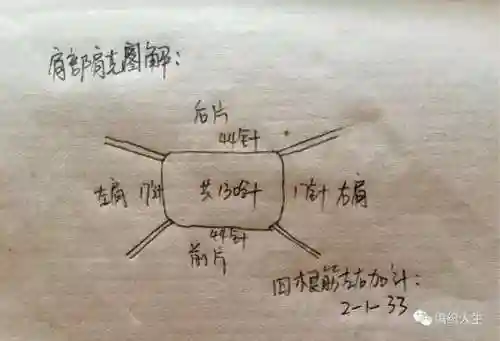 肩部肩克图解：
后片
44针
左肩 17针 共130针 17针 右肩
44针
前片
四根筋左右加针：
2-1-33
编织人生